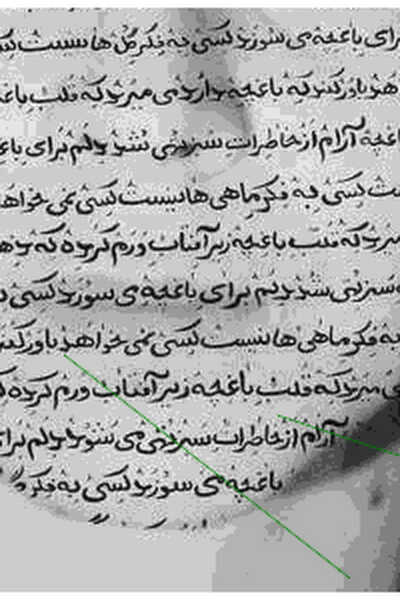 رای باغچه می سوزد کسی به فکر گل ها نیست کس
هد باور کند که باغچه دارد می میرد که قلب باغ
اغچه آرام از خاطرات سبز تهی شود دلم برای باغ
ست کسی به فکر ماهی ها نیست کسی نمی خواهد
میرد که قلب باغچه زیر آفتاب ورم کرده که ذه
سبز تهی شود دلم برای باغچه می سوزد کسی
به فکر ماهی ها نیست کسی نمی خواهد باور کند
ی میرد که قلب باغچه زیر آفتاب ورم کرده
آرام از خاطرات سبز تهی می شود دلم برا
باغچه می سوزد کسی به فکر